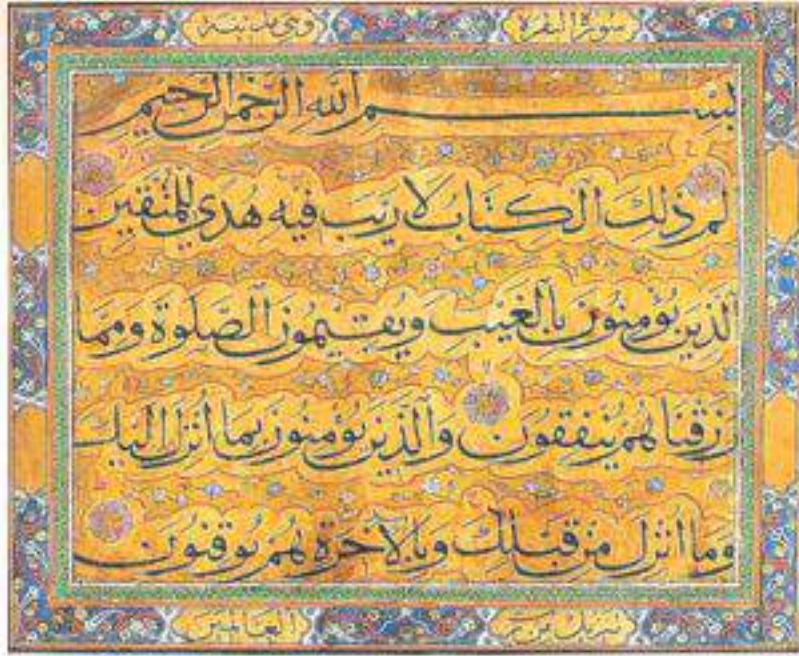 سورة البقرة وهي مدنية
بسم الله الرحمن الرحيم
الم ذلك الكتاب لا ريب فيه هدى للمتقين
الذين يؤمنون بالغيب ويقيمون الصلوة ومما
رزقناهم ينفقون والذين يؤمنون بما أنزل إليك
وما أنزل من قبلك وبالآخرة هم يوقنون
تنزيل من العالمين